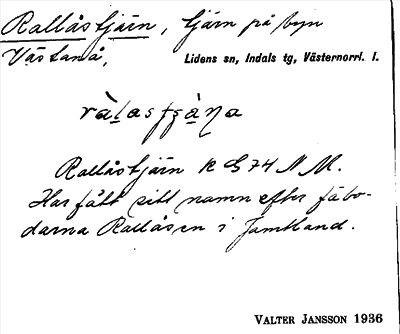 Rallåstjärn, tjärn på byn
Västanå, Lidens sn, Indals tg, Västernorrl. l.
ràlastʃæ̀ṇa
Rallåstjärn K G74 N M.
Har fått sitt namn efter fäbo-
darna Rallåsen i Jämtland.
VALTER JANSSON 1936